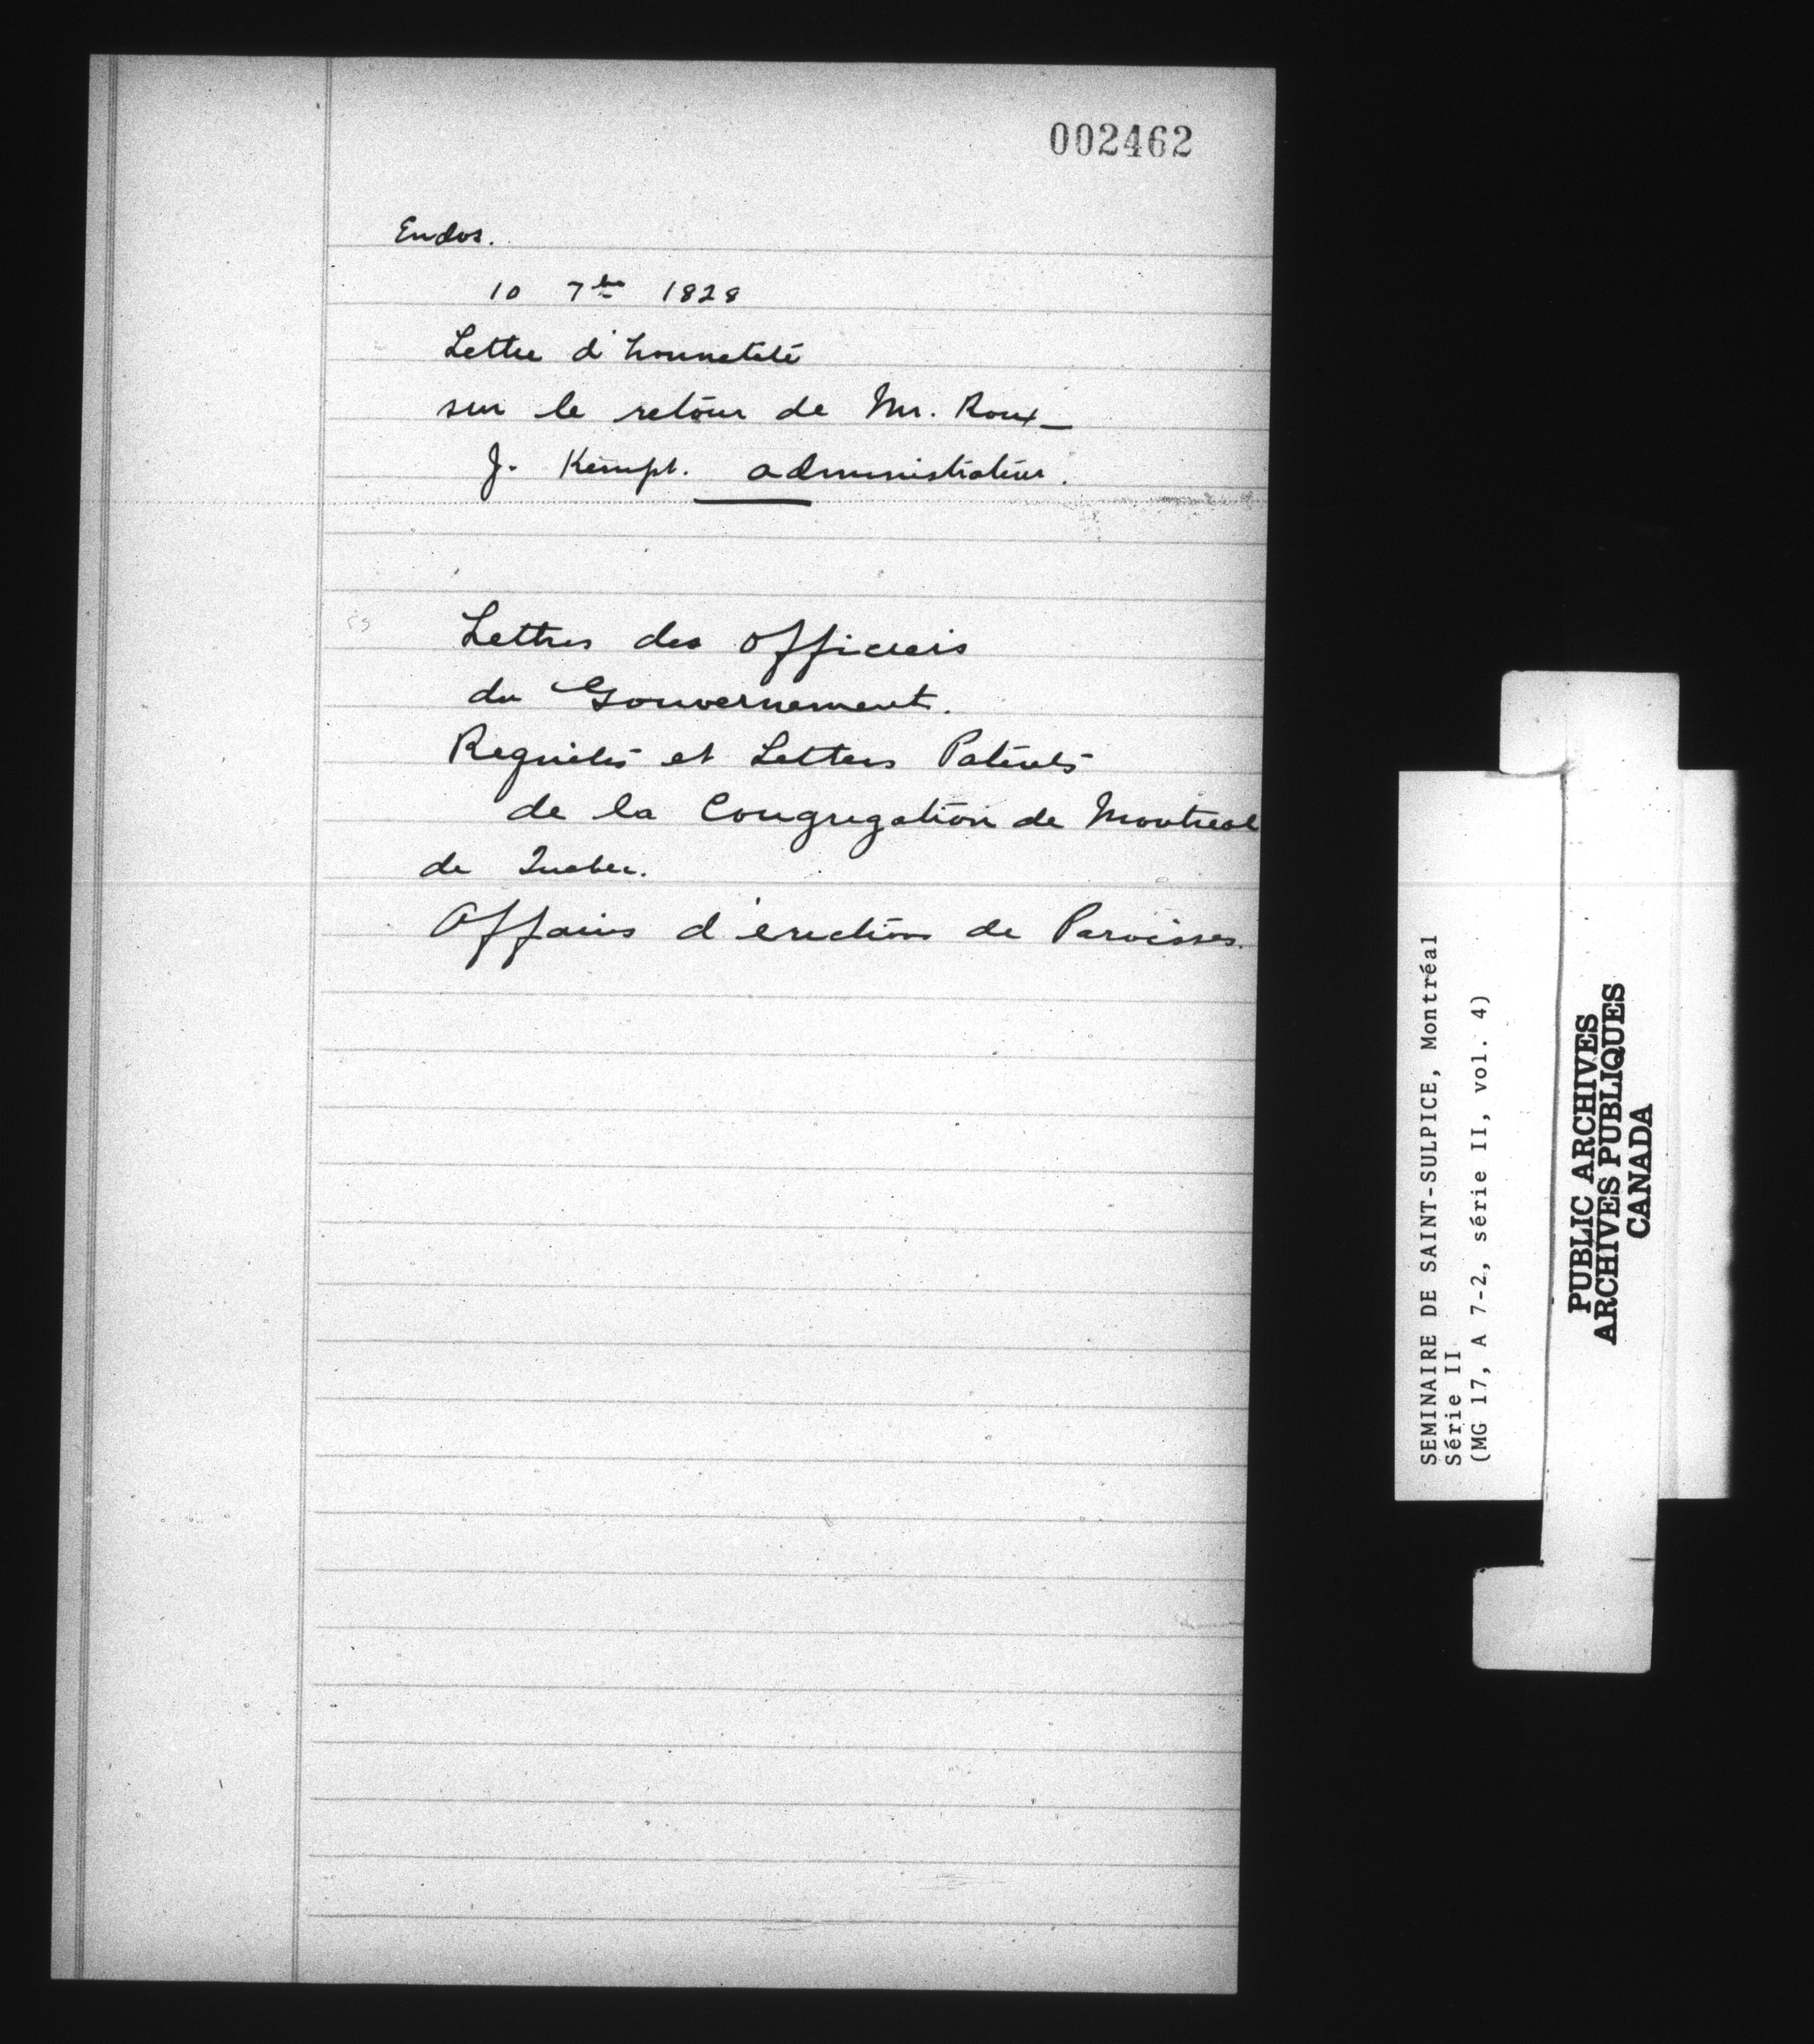 002462
Endos.
10 7bre 1828
Lettre d'honneteté
sur le retour de Mr. Roux_
J. Kempt. administrateur.
Lettres des officiers
du Gouvernement.
Requêtes et Lettres Patentes
de la Congregation de Montreal
de Quebec.
Affaires d'erection de Paroisses.
SEMINAIRE DE SAINT-SULPICE, Montréal
Série II
(MG 17, A 7-2, série II, vol. 4)
PUBLIC ARCHIVES
ARCHIVES PUBLIQUES
CANADA